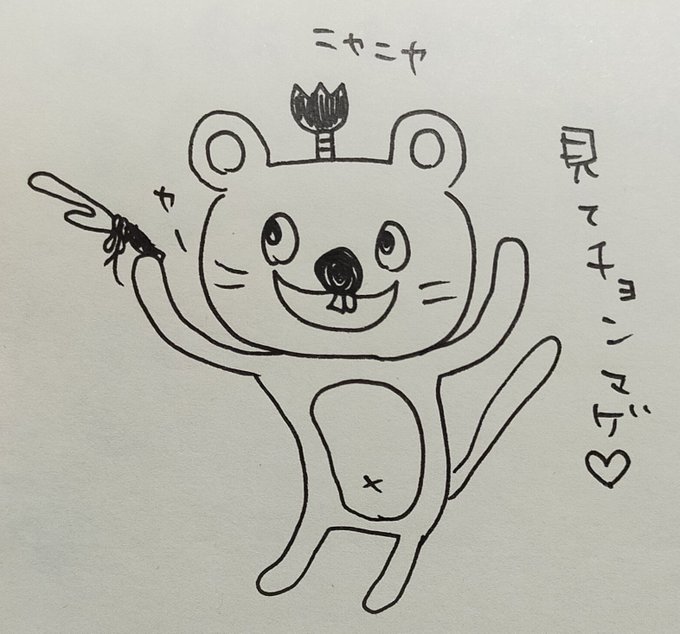 ニヤニヤ
見てチョンマゲ♡
ヤー